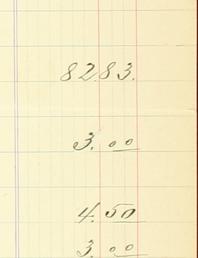 8283.
3.00
4.50
3.00